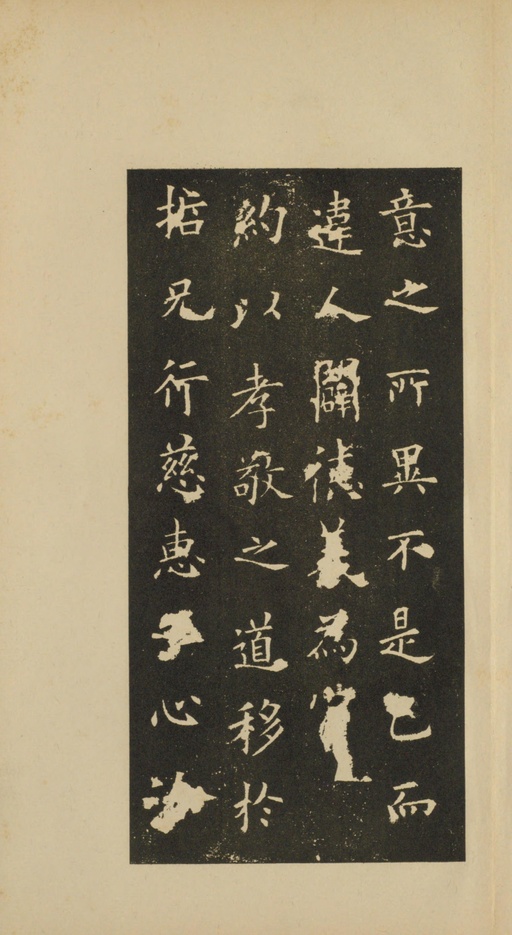 意之所異不是己而
違人闢德美為
約以孝敬之道移於
兄行慈惠心